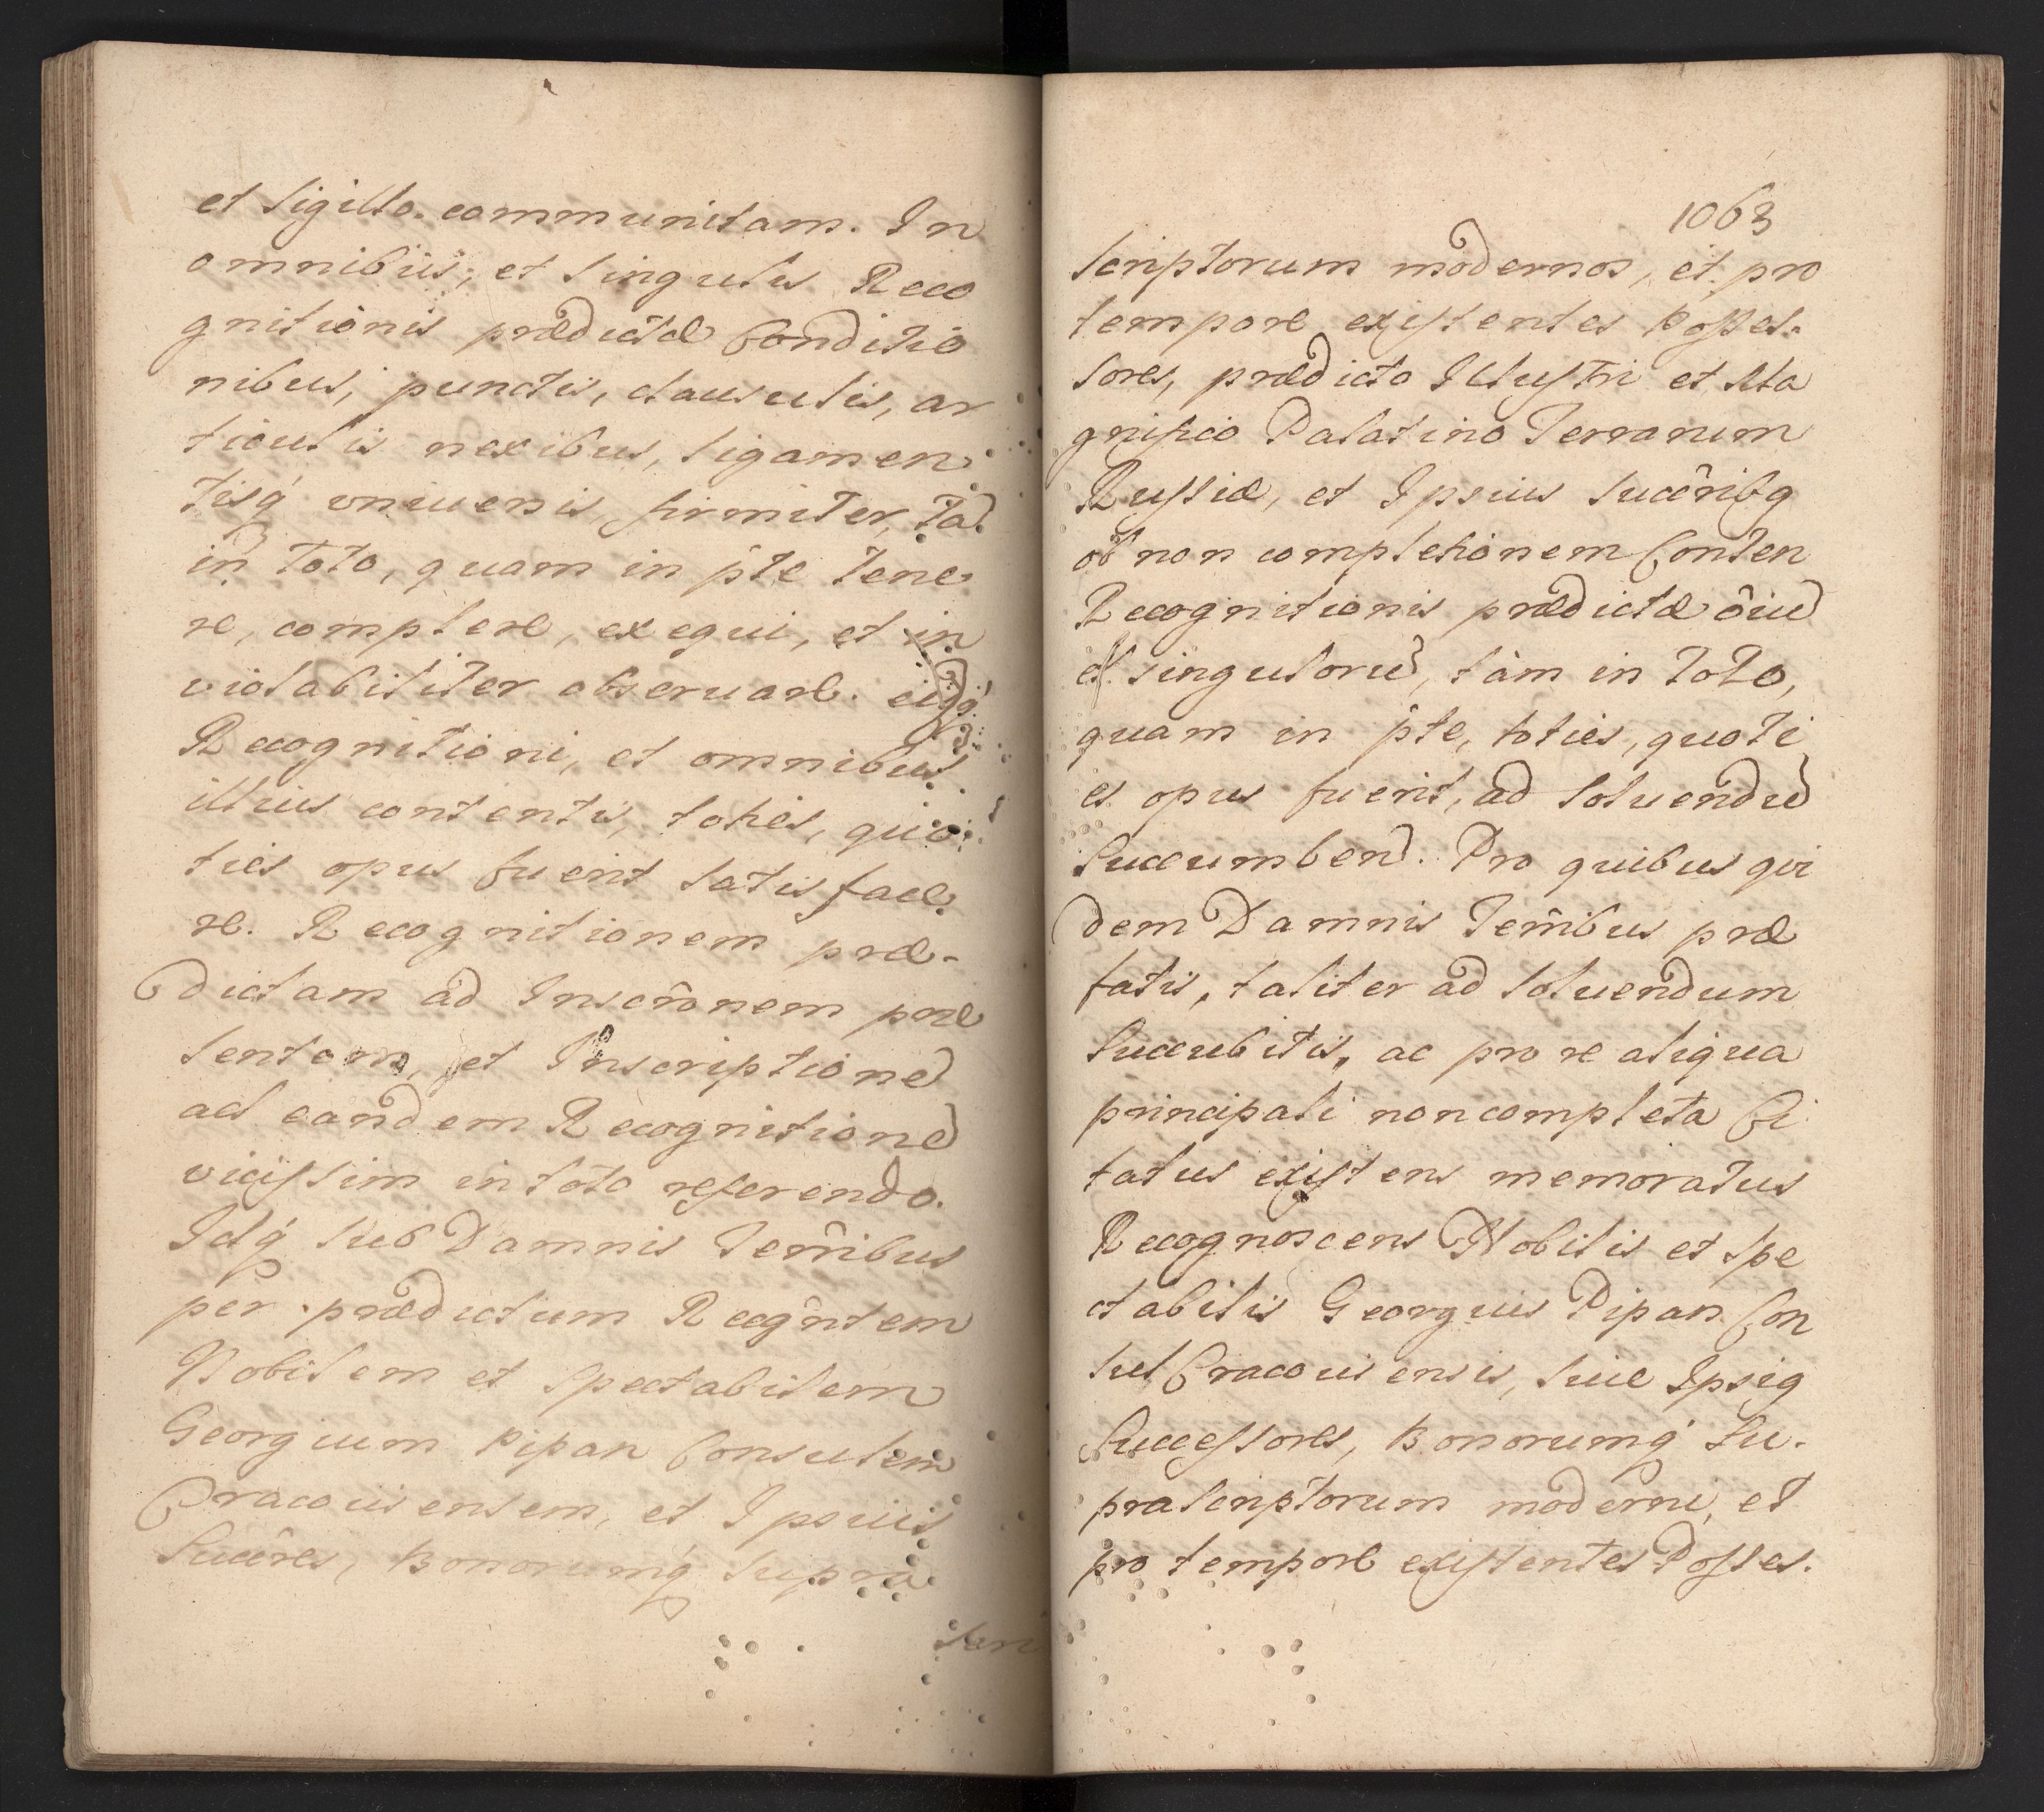 et sigillo. communitam. In
omnibus, et singulis Reco
gnitionis prædictæ Conditio
nibus, punctis, clausulis, ar
ticulis nexibus, ligamen
tisq́ vniuersis, firmiter, ta
in toto, quam in p̂te tene
re, complere, exequi, et in
violabiliter obseruare.
Recognitioni, et omnibus
illius contentis, toties, quo
ties opus fuerit satisface
re. Recognitionem præ-
dictam ad Inscr̂onem præ
sentem, et Inscriptione
ad eandem Recognitione
vicissim in toto referendo.
Idq́ sub Damnis Terr̂ibus
per prædictum Recogn̂tem
Nobilem et Spectabilem
Georgium Pipan Consulem
Cracouiensem, et Ipsius
Succêres, Bonorumq́ supra
scri
1063
scriptorum modernos, et pro
tempore existentes Posses-
sores, prædicto Illustri et Ma
gnifico Palatino Terrarum
Russiæ, et Ipsius Succêribq
ob non completionem Conten
Recognitionis prædictæ ôiu
et singuloru, tàm in toto,
quam in p̂te, toties, quoti
es opus fuerit, ad soluendu
succumben. Pro quibus qui
dem Damnis Terr̂ibus præ
fatis, taliter ad soluendum
succubitis, ac pro re aliqua
principali non completa Ci
tatus existens memoratus
Recognoscens Nobilis et Spe
ctabilis Georgius Pipan Con
sul Cracouiensis, siue Ipsiq
Successores, Bonorumq́ Su-
prascriptorum moderni, et
pro tempore existentes Posses-